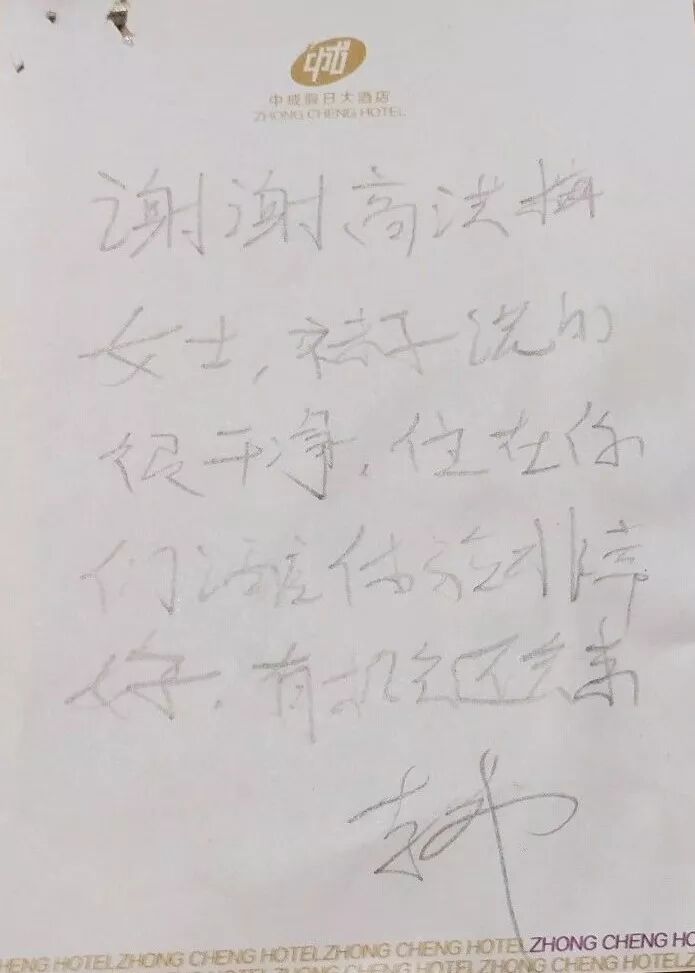 中城假日大酒店
ZHONG CHENG HOTEL
谢谢高洪梅
女士,裤子洗的
很干净,住在你
们酒店体验非常
好,有机会还会来
HENG HOTEL ZHONG CHENG HOTEL ZHONG CHENG HOTEL ZHONG CHENG HO